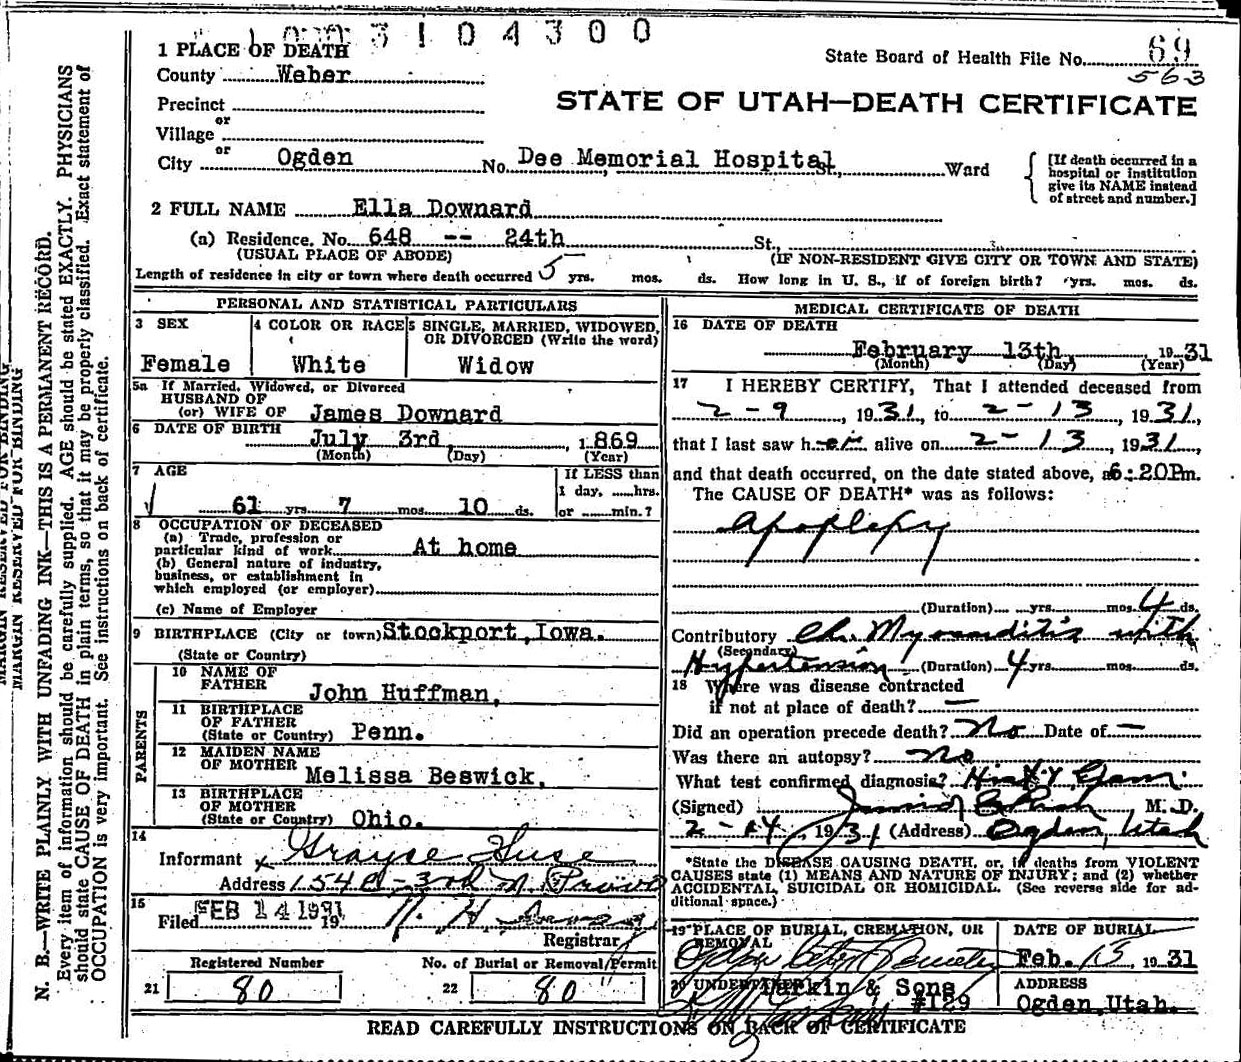 3104300
1 PLACE OF DEATH
State Board of Health File No. 69
563
County Weber
STATE OF UTAH—DEATH CERTIFICATE
Precinct
or
Village
or
City Ogden No. Dee Memorial Hospital St., Ward
[If death occurred in a
hospital or institution
give its NAME instead
of street and number.]
2 FULL NAME Ella Downard
(a) Residence. No. 648 -- 24th St.,
(USUAL PLACE OF ABODE) (IF NON-RESIDENT GIVE CITY OR TOWN AND STATE)
Length of residence in city or town where death occurred 5 yrs. mos. ds. How long in U. S., if of foreign birth? yrs. mos. ds.
PERSONAL AND STATISTICAL PARTICULARS
3 SEX
Female
4 COLOR OR RACE
White
5 SINGLE, MARRIED, WIDOWED,
OR DIVORCED (Write the word)
Widow
5a If Married, Widowed, or Divorced
HUSBAND OF
(or) WIFE OF James Downard
6 DATE OF BIRTH
July 3rd, 1869
(Month) (Day) (Year)
7 AGE
61 yrs. 7 mos. 10 ds.
If LESS than
1 day, hrs.
or min.?
8 OCCUPATION OF DECEASED
(a) Trade, profession or
particular kind of work At home
(b) General nature of industry,
business, or establishment in
which employed (or employer)
(c) Name of Employer
9 BIRTHPLACE (City or town) Stockport, Iowa.
(State or Country)
PARENTS
10 NAME OF
FATHER John Huffman,
11 BIRTHPLACE
OF FATHER
(State or Country) Penn.
12 MAIDEN NAME
OF MOTHER
Melissa Beswick,
13 BIRTHPLACE
OF MOTHER
(State or Country) Ohio.
14
Informant Grayse Huse
Address 154 - 3rd N. Provo
15
Filed FEB 14 1931 19
Registrar
Registered Number
21 80
No. of Burial or Removal Permit
22 80
MEDICAL CERTIFICATE OF DEATH
16 DATE OF DEATH
February 13th, 1931
(Month) (Day) (Year)
17 I HEREBY CERTIFY, That I attended deceased from
2-9, 1931, to 2-13 1931,
that I last saw her alive on 2-13, 1931,
and that death occurred, on the date stated above, at 6:20Pm.
The CAUSE OF DEATH* was as follows:
apoplexy
(Duration) yrs. mos. 4 ds.
Contributory Ch. Myocarditis with
(Secondary)
Hypertension (Duration) 4 yrs. mos. ds.
18 Where was disease contracted
if not at place of death? —
Did an operation precede death? No Date of —
Was there an autopsy? No
What test confirmed diagnosis?
(Signed) M. D.
2-14, 1931 (Address) Ogden, Utah
*State the DISEASE CAUSING DEATH, or, if deaths from VIOLENT
CAUSES state (1) MEANS AND NATURE OF INJURY; and (2) whether
ACCIDENTAL, SUICIDAL OR HOMICIDAL. (See reverse side for ad-
ditional space.)
19 PLACE OF BURIAL, CREMATION, OR
REMOVAL
Ogden City Cemetery
DATE OF BURIAL
Feb. 15, 1931
20 UNDERTAKER Larkin & Sons
#129
ADDRESS
Ogden, Utah.
READ CAREFULLY INSTRUCTIONS ON BACK OF CERTIFICATE
MARGIN RESERVED FOR BINDING
MARGIN RESERVED FOR BINDING
N. B.—WRITE PLAINLY WITH UNFADING INK—THIS IS A PERMANENT RECORD.
Every item of information should be carefully supplied. AGE should be stated EXACTLY. PHYSICIANS
should state CAUSE OF DEATH in plain terms, so that it may be properly classified. Exact statement of
OCCUPATION is very important. See instructions on back of certificate.